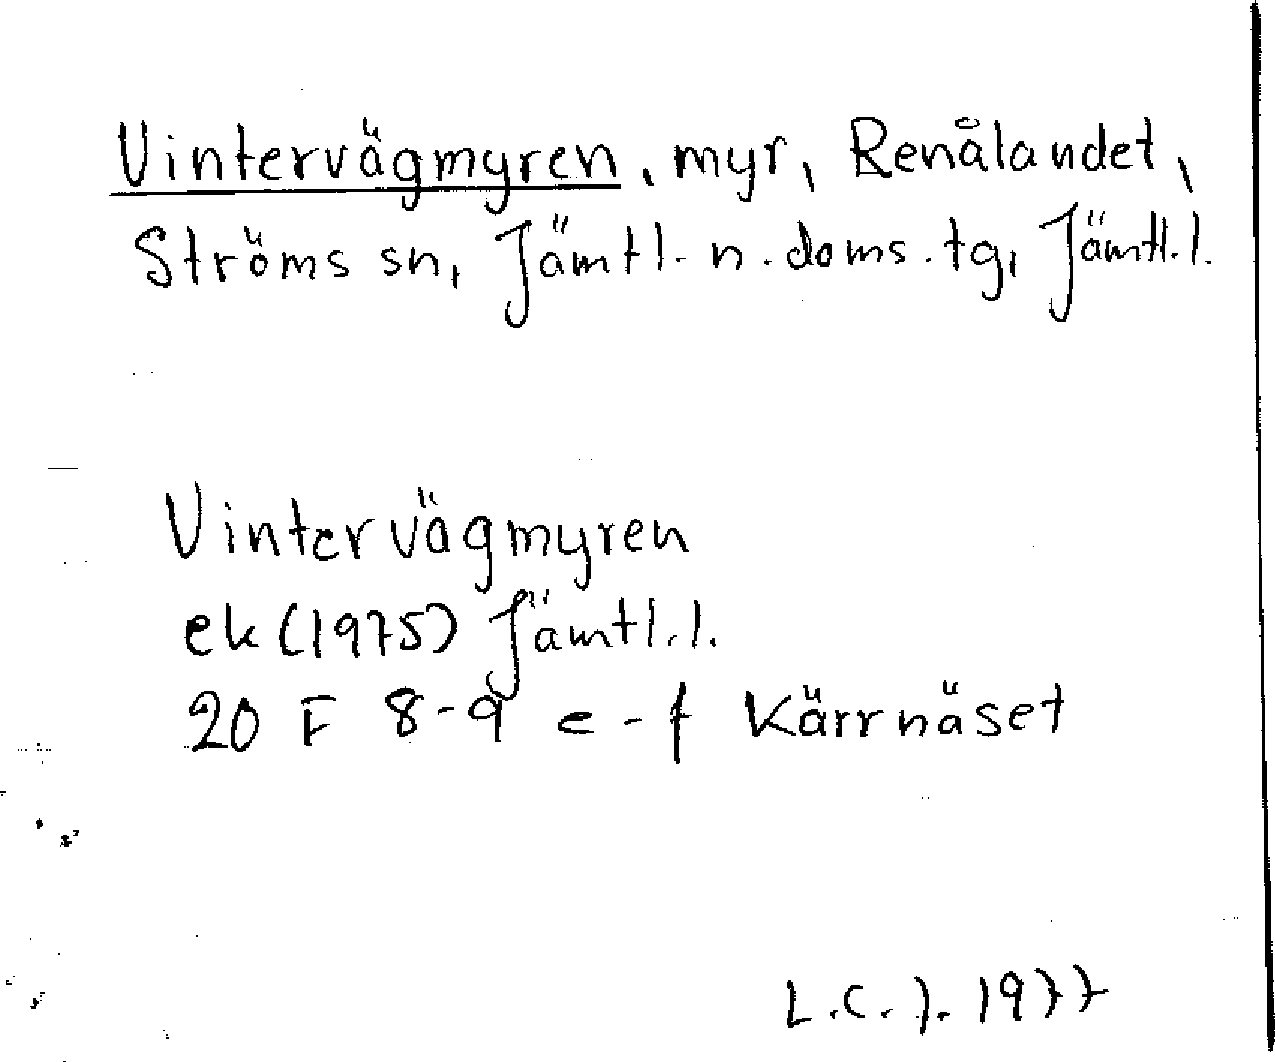 Vintervägmyren, myr, Renålandet,
Ströms sn, Jämtl. n. doms. tg, Jämtl. l.
Vintervägmyren
ek (1975) Jämtl. l.
20 F 8-9 e-f Kärrnäset
L.C.J. 1977